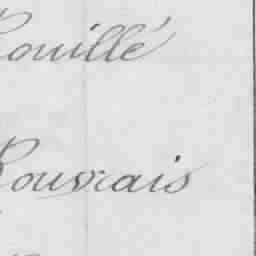 Rouillé
Rouvrais